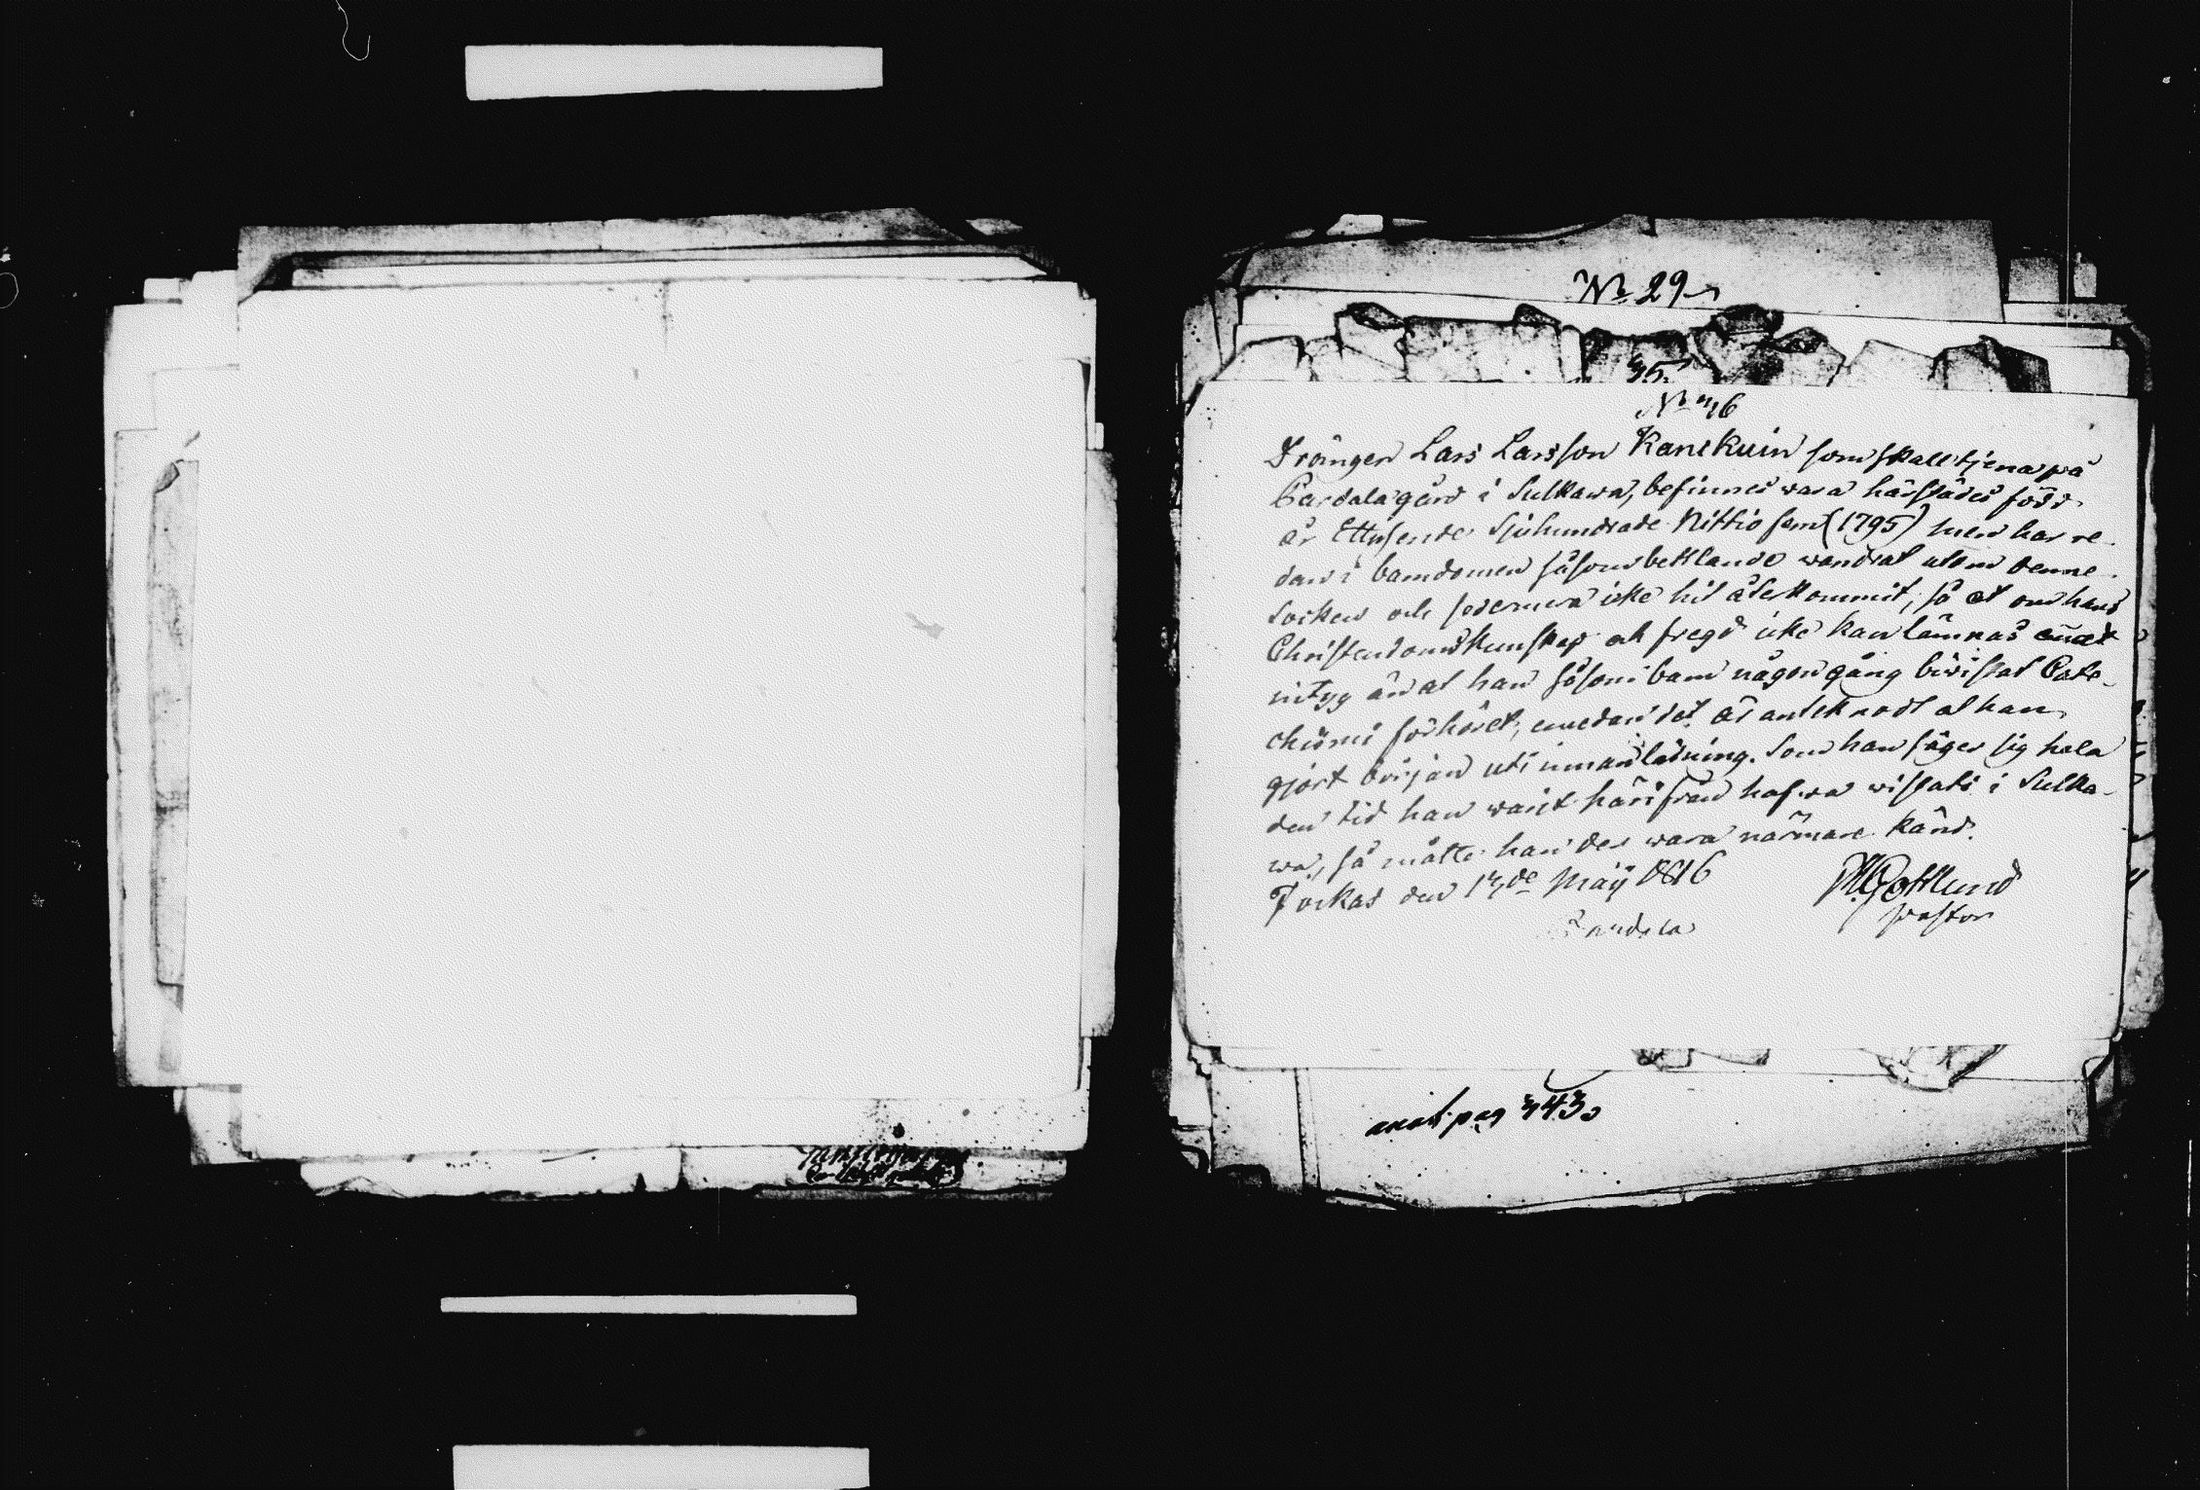 No 29
35.
No 36
Drängen Lars Larsson Kanskuin som skall tjena på
Pardala gård i Sulkawa, befinnes wara härstädes född
år Ettusende Sjuhundrade Nittio fem (1795) men har re-
dan i barndomen såsom bettlande wandrat utom denne
Socken och sedermera icke hit återkommit, så at om hans
Christendoms kunskap och fregd icke kan lämnas annat
intyg än at han såsom barn någon gång biwistat Cate-
chismi förhöret, emedan det är antecknadt at han
gjort början uti innanläsning. Som han säger sig hela
den tid han warit härifrån hafwa wistats i Sulka-
wa, så måtte han der wara närmare känd.
Jockas den 13de Maji 1816
Gottlund
pastor
Pardala
anot. pag 343